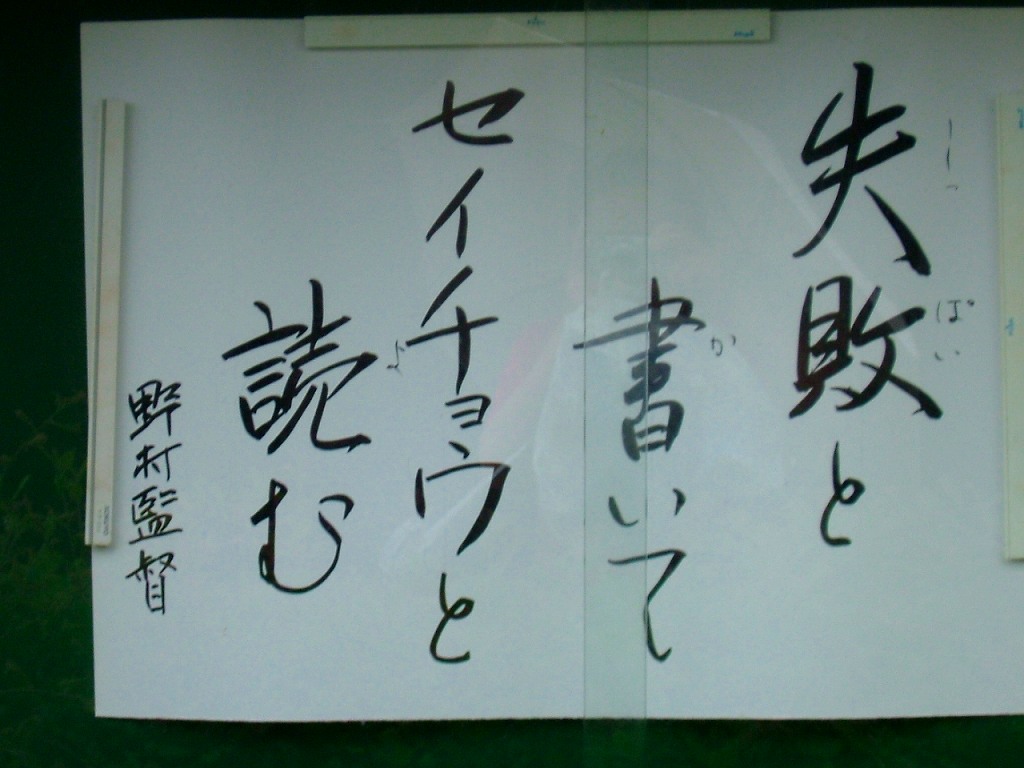 失敗と
しっぱい
書いて
か
セイチョウと
読む
よ
野村監督